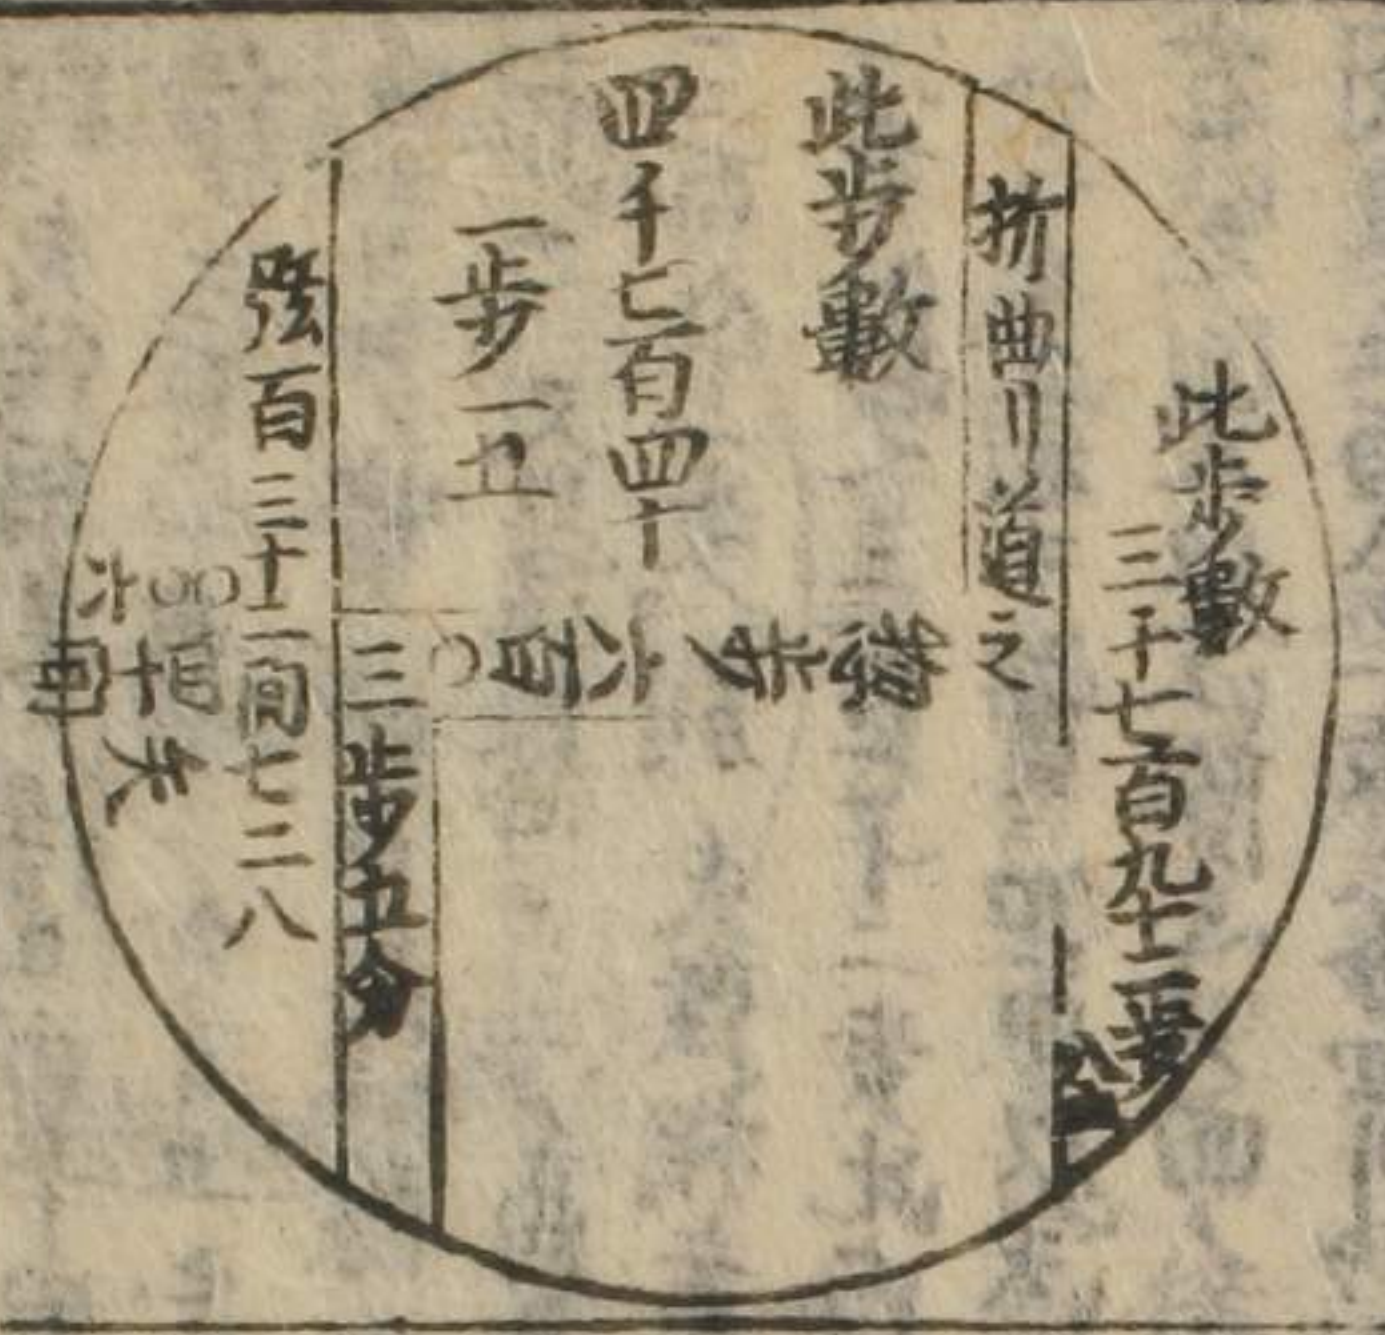 此歩數
三千七百九十二歩
折曲リ道之
此歩數
四千七百四十
一歩一五
惣歩六百〇
三歩五分
弦百三十一間七二八
矢
四十間
〇〇六